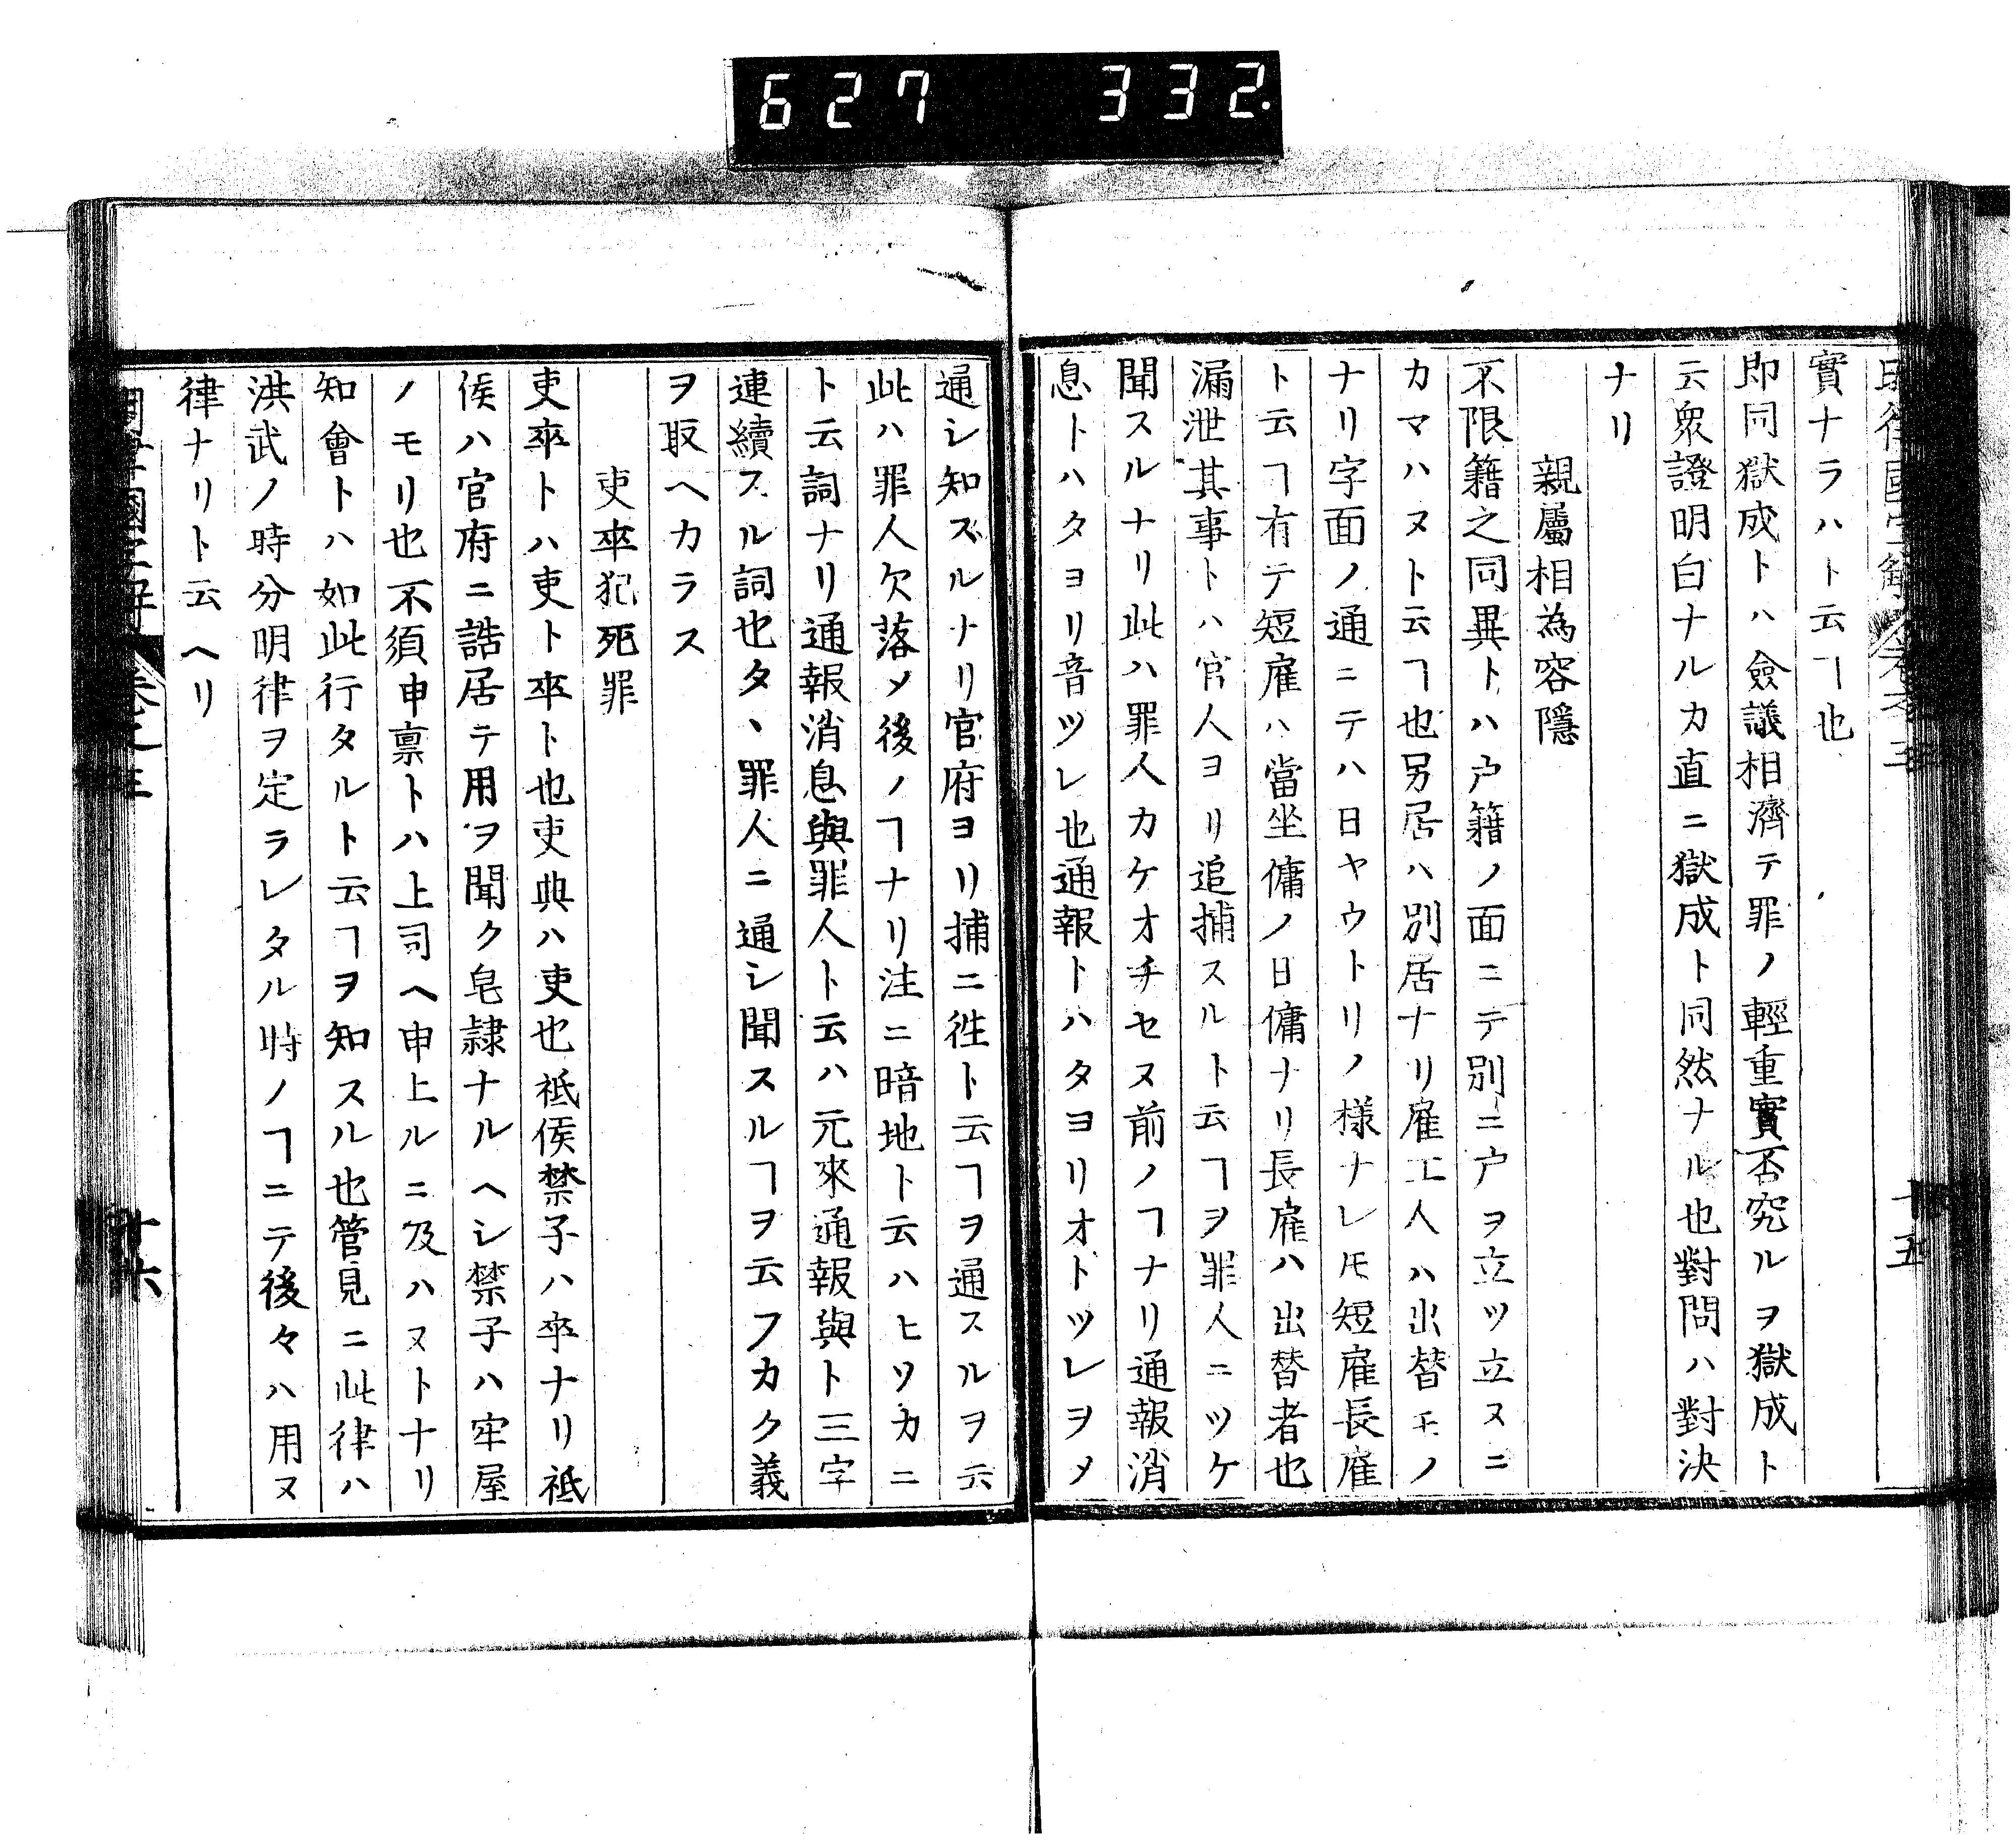 627 332.
實ナラハト云ヿ也
即同獄成トハ僉議相濟テ罪ノ輕重實否究ルヲ獄成ト
云衆證明白ナルカ直ニ獄成ト同然ナル也對問ハ對決
ナリ
親屬相為容隱
不限籍之同異トハ戸籍ノ面ニテ別ニ戸ヲ立ツ立ヌニ
カマハヌト云ヿ也另居ハ別居ナリ雇工人ハ出替モノ
ナリ字面ノ通ニテハ日ヤウトリノ様ナレモ短雇長雇
ト云ヿ有テ短雇ハ當坐傭ノ日傭ナリ長雇ハ出替者也
漏泄其事トハ官人ヨリ追捕スルト云ヿヲ罪人ニツケ
聞スルナリ此ハ罪人カケオチセヌ前ノヿナリ通報消
息トハタヨリ音ツレ也通報トハタヨリオトツレヲメ
十五
通シ知ズルナリ官府ヨリ捕ニ徃ト云ヿヲ通スルヲ云
此ハ罪人欠落メ後ノヿナリ注ニ暗地ト云ハヒソカニ
ト云詞ナリ通報消息與罪人ト云ハ元來通報與ト三字
連續スル詞也タヽ罪人ニ通シ聞スルヿヲ云フカク義
ヲ取ヘカラス
吏卒犯死罪
吏卒トハ吏ト卒ト也吏典ハ吏也祗候禁子ハ卒ナリ祗
候ハ官府ニ詰居テ用ヲ聞ク皂隷ナルヘシ禁子ハ牢屋
ノモリ也不須申禀トハ上司ヘ申上ルニ及ハヌトナリ
知會トハ如此行タルト云ヿヲ知スル也管見ニ此律ハ
洪武ノ時分明律ヲ定ラレタル時ノヿニテ後々ハ用ヌ
律ナリト云ヘリ
十六